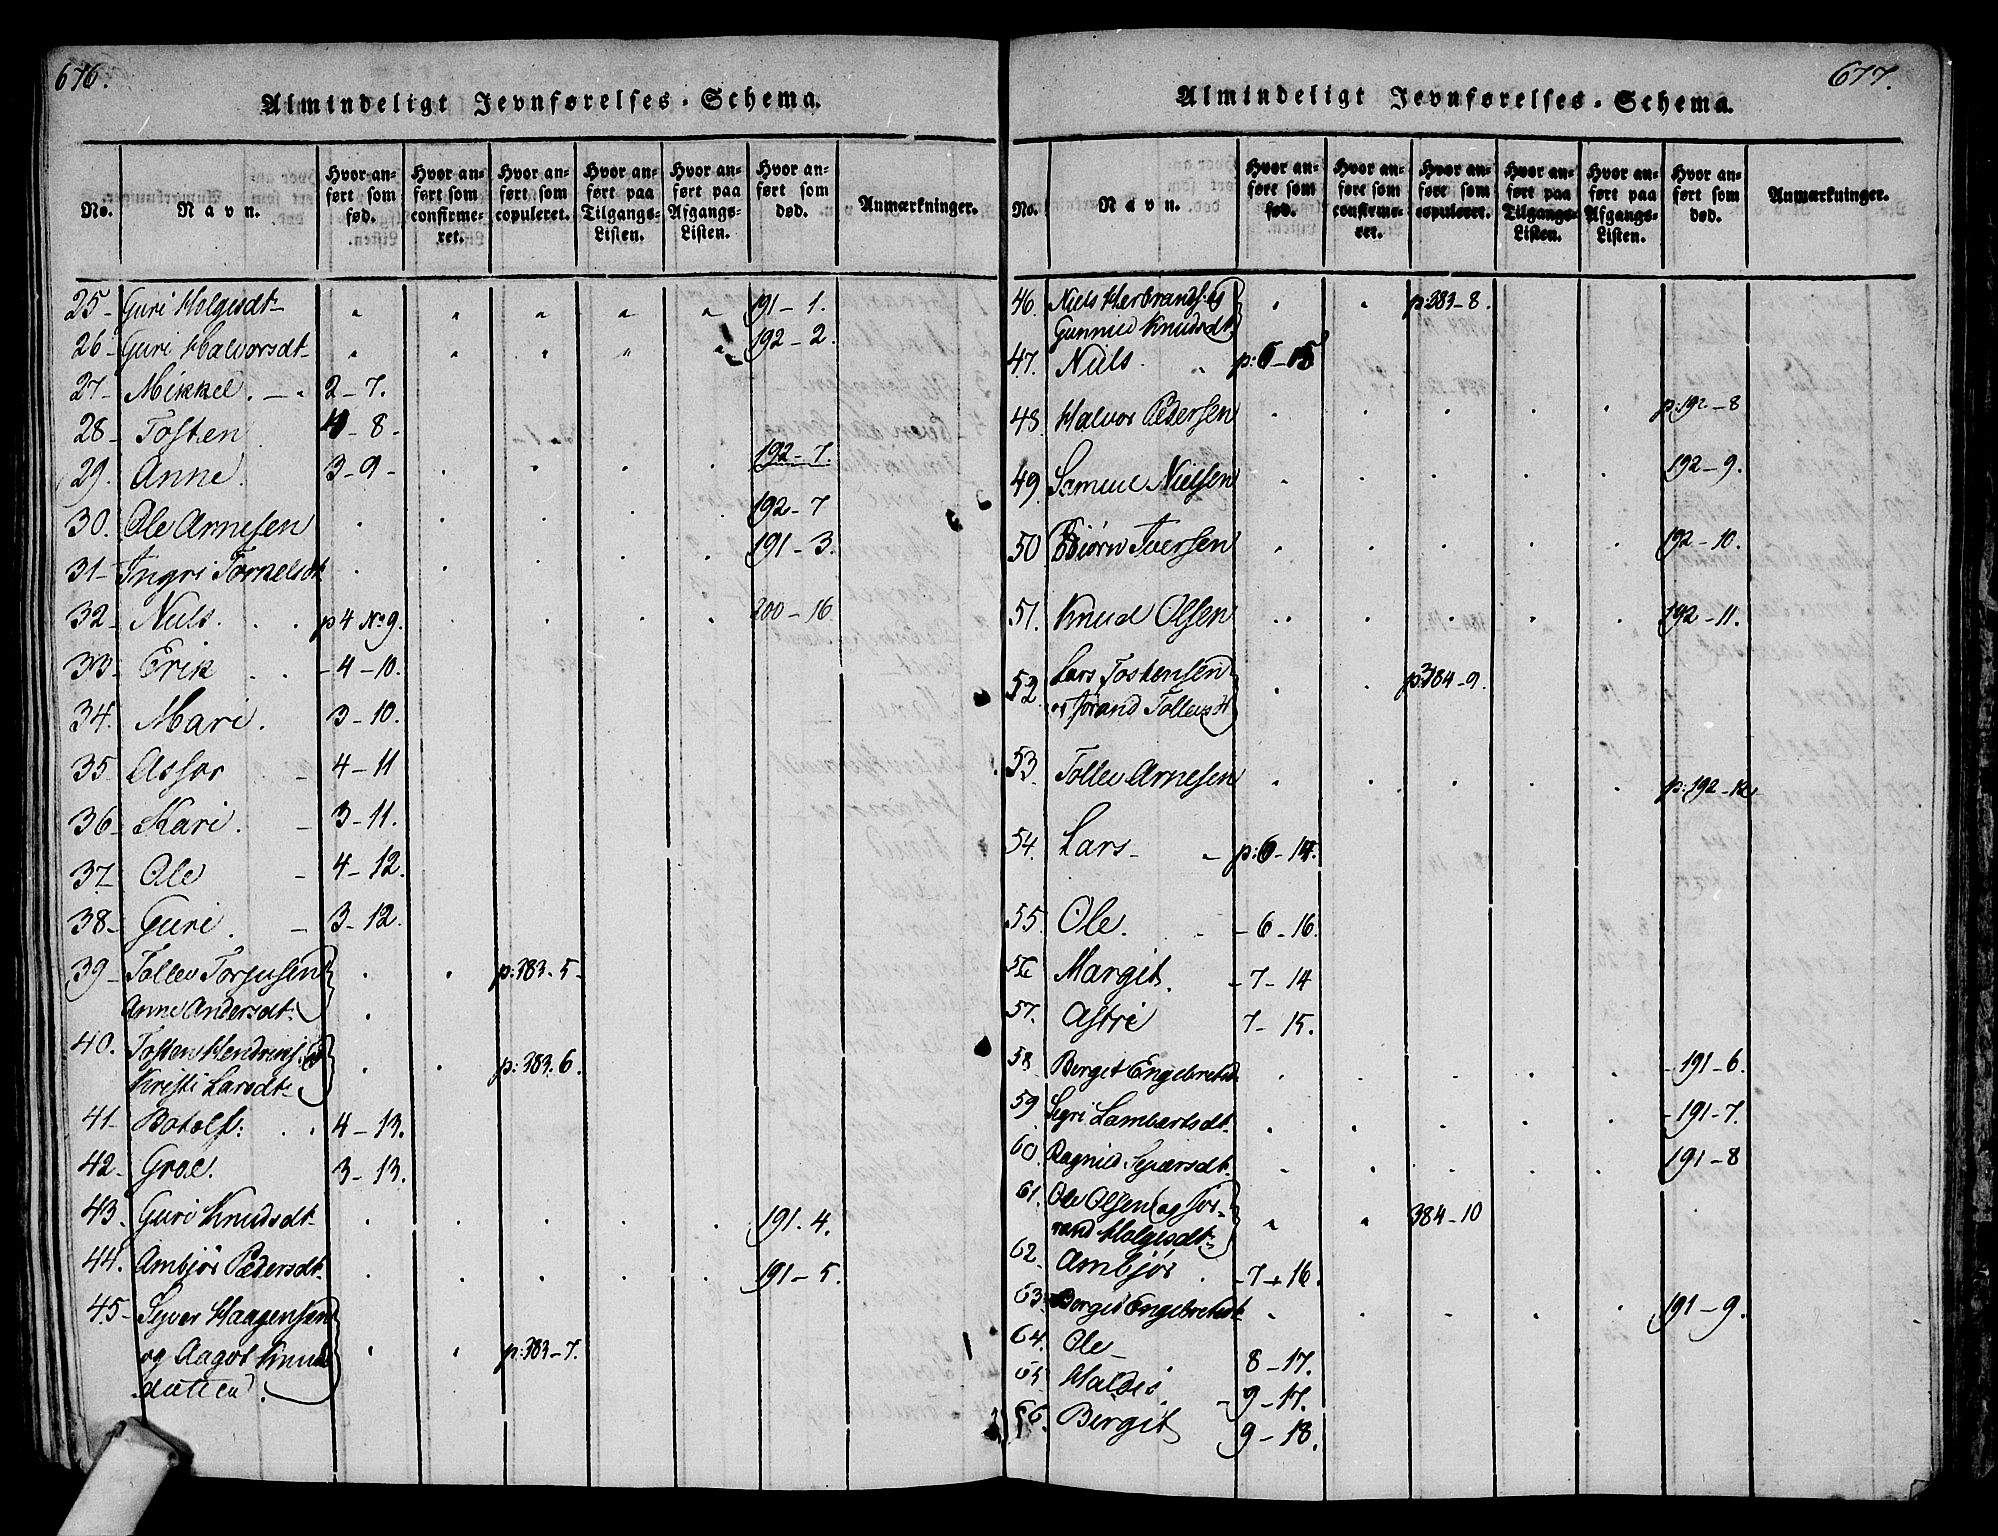 676.
Almindeligt Jevnførelses-Schema.
No. | Navn. | Hvor anført som fød. | Hvor anført som confirmeret. | Hvor anført som copuleret. | Hvor anført paa Tilgangs-Listen. | Hvor anført paa Afgangs-Listen. | Hvor anført som død. | Anmærkninger.
25- Guri Helgesdt- " " " " " 191-1.
26- Guri Halvorsdt- " " " " " 192-2.
27- Mikkel. 2-7.
28- Tosten 4-8-
29. Anne. 3-9- 192-7.
30. Ole Arnesen 192-7
31- Ingri Torkelsdt 191-3.
32- Niels. p4 No 9. 200-16
33- Erik -4-10.
34. Mari. 3-10.
35 Assor 4-11
36- Kari. 3-11.
37- Ole 4-12.
38- Guri. 3-12.
39- Tollev Torjusen p:383-5-
Anne Andersdt:
40. Tosten Hendriks: p:383.6.
Kristi Larsdt-
41- Botolf: 4-13.
42- Groe. 3-13.
43. Guri Knudsdt- 191-4.
44. Ambjør Pedersdt. 191-5.
45- Syver Haagensen
og Aagot Knuds p:383-7.
datter.
677.
Almindeligt Jevnførelses-Schema.
No. | Navn. | Hvor anført som fød. | Hvor anført som confirmeret. | Hvor anført som copuleret. | Hvor anført paa Tilgangs-Listen. | Hvor anført paa Afgangs-Listen. | Hvor anført som død. | Anmærkninger.
46. Niels Herbrands: og " " p:383-8.
Gunnild Knudsdt
47. Niels. p:6-15
48. Halvor Pedersen p:192-8
49. Samuel Nielsen 192-9.
50 Biørn Iversen 192-10.
51. Knud Olsen 192-11.
52. Lars Tostensen p:384-9.
og Jørand Tollevsdt
53. Tollev Arnesen p:192-12
54. Lars- p:6-14.
55. Ole. -6-16.
56 Margit. -7-14
57. Astri 7-15.
58. Bergit Engebretsd. -191-6.
59 Sigri Lambertsdt. -191-7.
60. Ragnild Syversdt. 191-8
61. Ole Olsen og Jør- " " 384-10
rand Helgesdt-
62. Ambjør -7-16.
63. Bergit Engebretsdt 191-9.
64. Ole- 8-17.
65 Haldis -9-17.
66. Bergit 9-18.